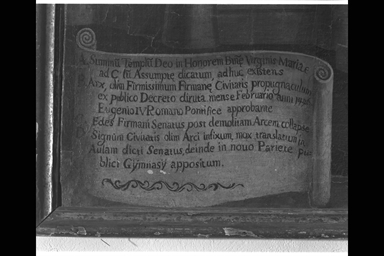 Summū templū Deo in Honorem Virginis Mariæ
ad C fil Assumptæ dicatum, adhuc extans
Arx, olim Firmissimum Firmanæ Civitatis propugnaculum
ex publico Decreto diruta mense Februario
Eugenio IV Romano Pontifice approbante
Ędes Firmani Senatus post demolitam Arcem
Signum Civitatis olim Arci infixum, mox translatum
Aulam dicti Senatus, deinde in nouo Pariete pu
blici Gymnasÿ appositum.